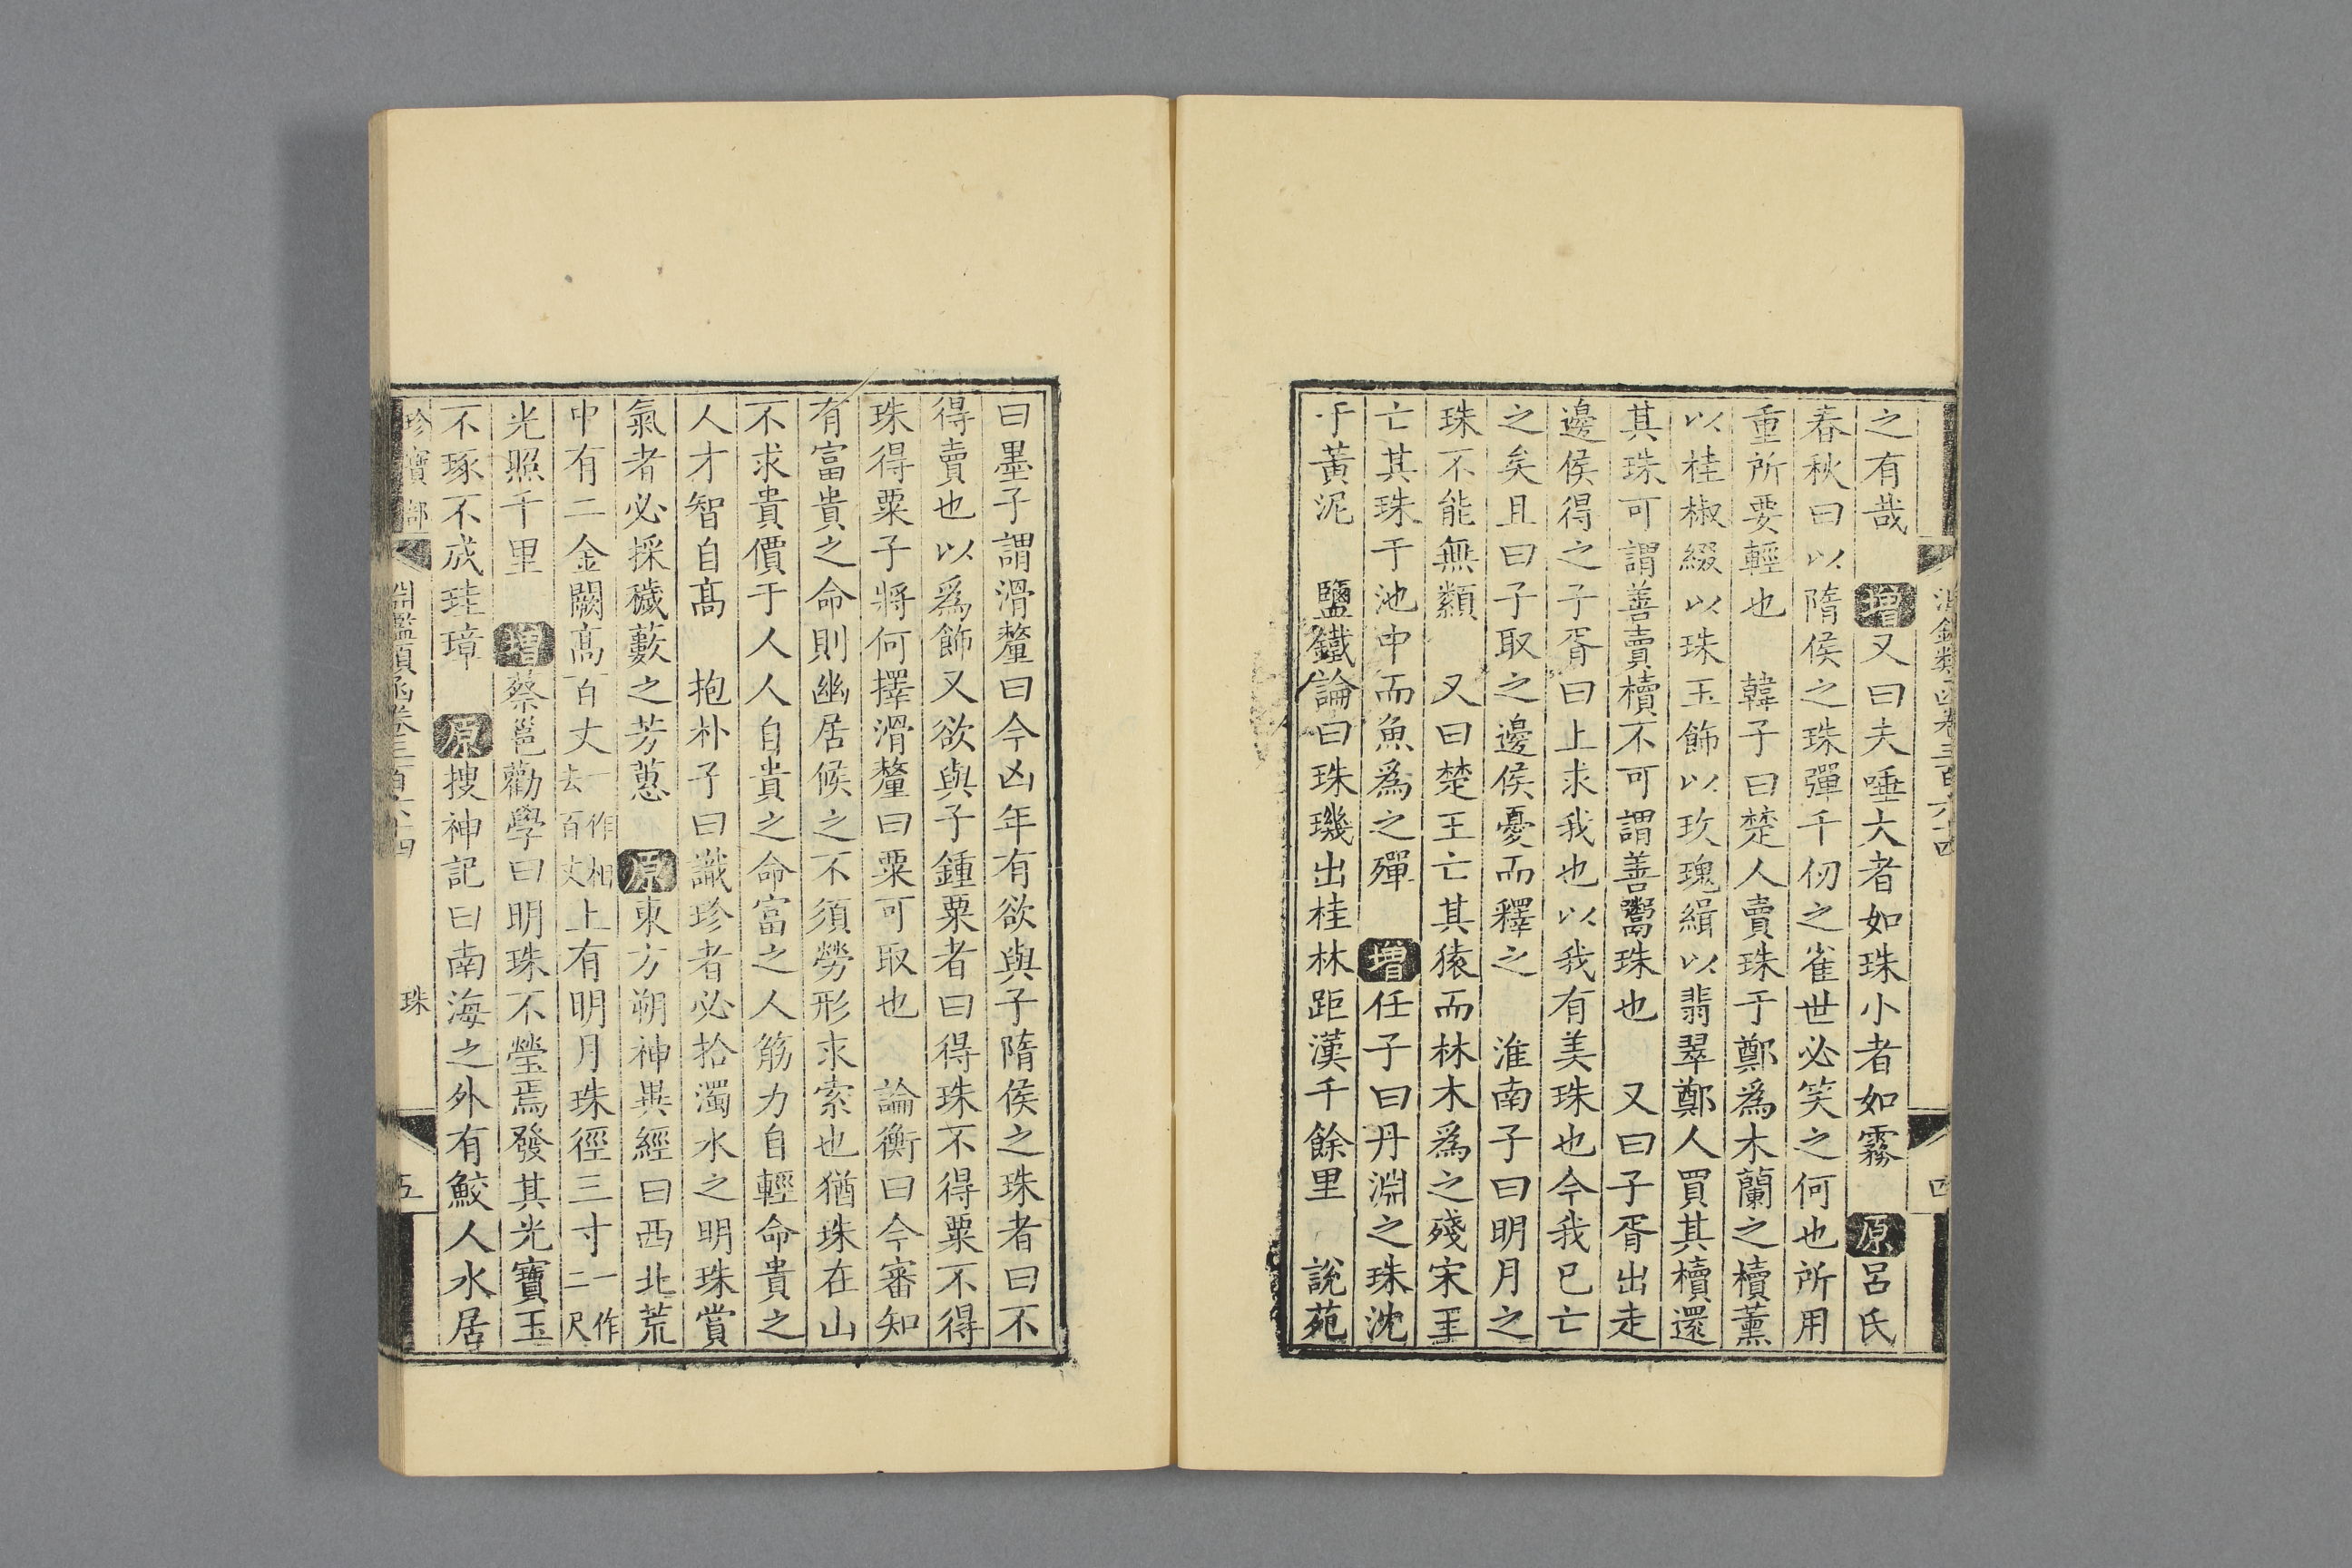 之有哉 增又曰夫唾大者如珠小者如霧 原呂氏
春秋曰以隋侯之珠彈千仞之雀世必笑之何也所用
重所要輕也 韓子曰楚人賣珠于鄭爲木蘭之櫝薰
以桂椒綴以珠玉飾以玫瑰緝以翡翠鄭人買其櫝還
其珠可謂善賣櫝不可謂善鬻珠也 又曰子胥出走
邊侯得之子胥曰上求我也以我有美珠也今我已亡
之矣且曰子取之邊侯憂而釋之 淮南子曰明月之
珠不能無纇 又曰楚王亡其猿而林木爲之殘宋王
亡其珠于池中而魚爲之殫 增任子曰丹淵之珠沈
于黃泥 鹽鐵論曰珠璣出桂林距漢千餘里 說苑
曰墨子謂滑釐曰今凶年有欲與子隋侯之珠者曰不
得賣也以爲飾又欲與子鍾粟者曰得珠不得粟不得
珠得粟子將何擇滑釐曰粟可取也 論衡曰今審知
有富貴之命則幽居候之不須勞形求索也猶珠在山
不求貴價于人人自貴之命富之人筋力自輕命貴之
人才智自高 抱朴子曰識珍者必拾濁水之明珠賞
氣者必採穢藪之芳蕙 原東方朔神異經曰西北荒
中有二金闕高百丈一作相去百丈上有明月珠徑三寸一作二尺
光照千里 增蔡邕勸學曰明珠不瑩焉發其光寶玉
不琢不成珪璋 原搜神記曰南海之外有鮫人水居
珍寶部 淵鑑類函卷三百六十四 珠 五